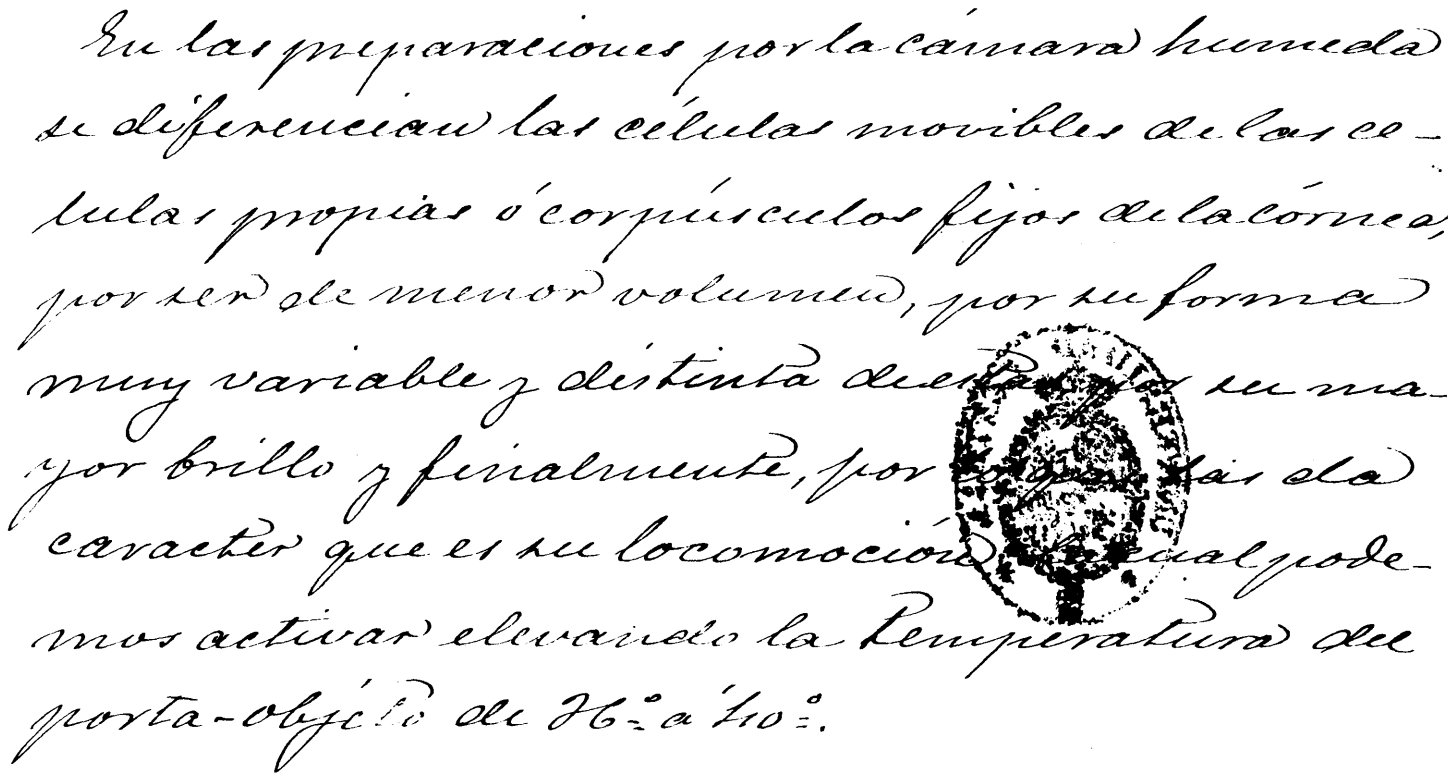 En las preparaciones por la cámara humeda
se diferencian las células movibles de las ce-
lulas propias ó corpúsculos fijos de la córnea,
por ser de menor volumen, por su forma
muy variable y distinta de estas por su ma-
yor brillo y finalmente, por lo que las da
caracter que es su locomoción la cual pode-
mos activar elevando la temperatura del
porta-objeto de 36º á 40º.